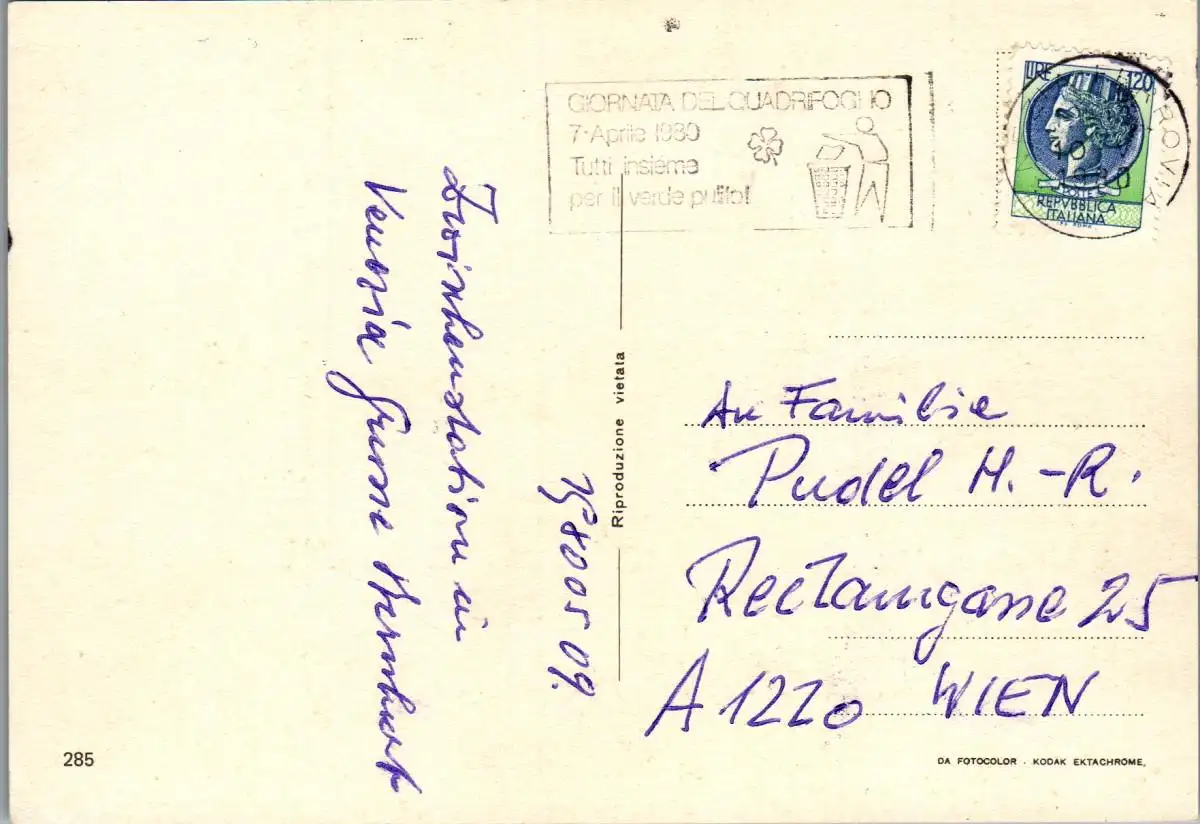 GIORNATA DEL QUADRIFOGLIO
7-Aprile 1980
Tutti insieme
per il verde pulito!
LIRE 120
REPVBBLICA
ITALIANA
Zwischenstation in
Venezia
800509.
Riproduzione vietata
An Familie
Pudel H.-R.
Reclamgasse 25
A 1220 WIEN
285
DA FOTOCOLOR · KODAK EKTACHROME,